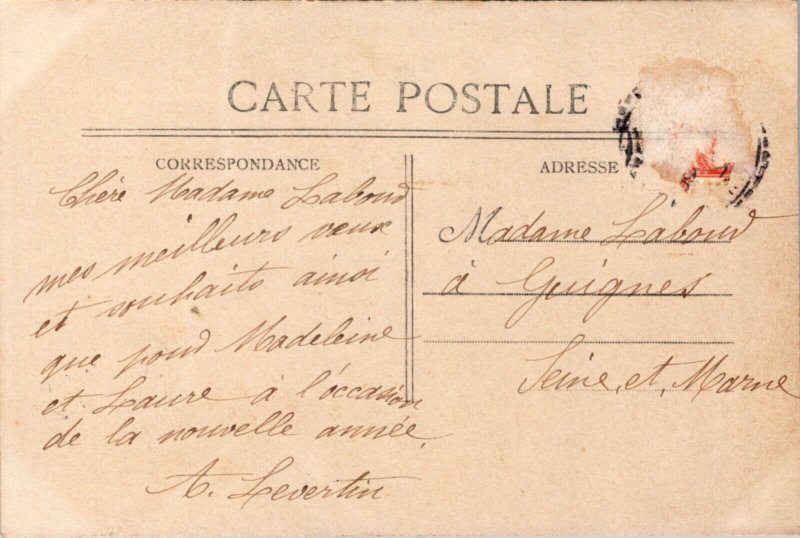 CARTE POSTALE
CORRESPONDANCE
Chère Madame Labour
mes meilleurs vœux
et souhaits ainsi
que pour Madeleine
et Laure à l'occasion
de la nouvelle année.
A. Levertin
ADRESSE
Madame Labour
à Guignes
Seine, et, Marne